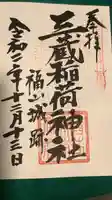 奉拝
三蔵稲荷神社
福山城跡
令和二年十一月十三日